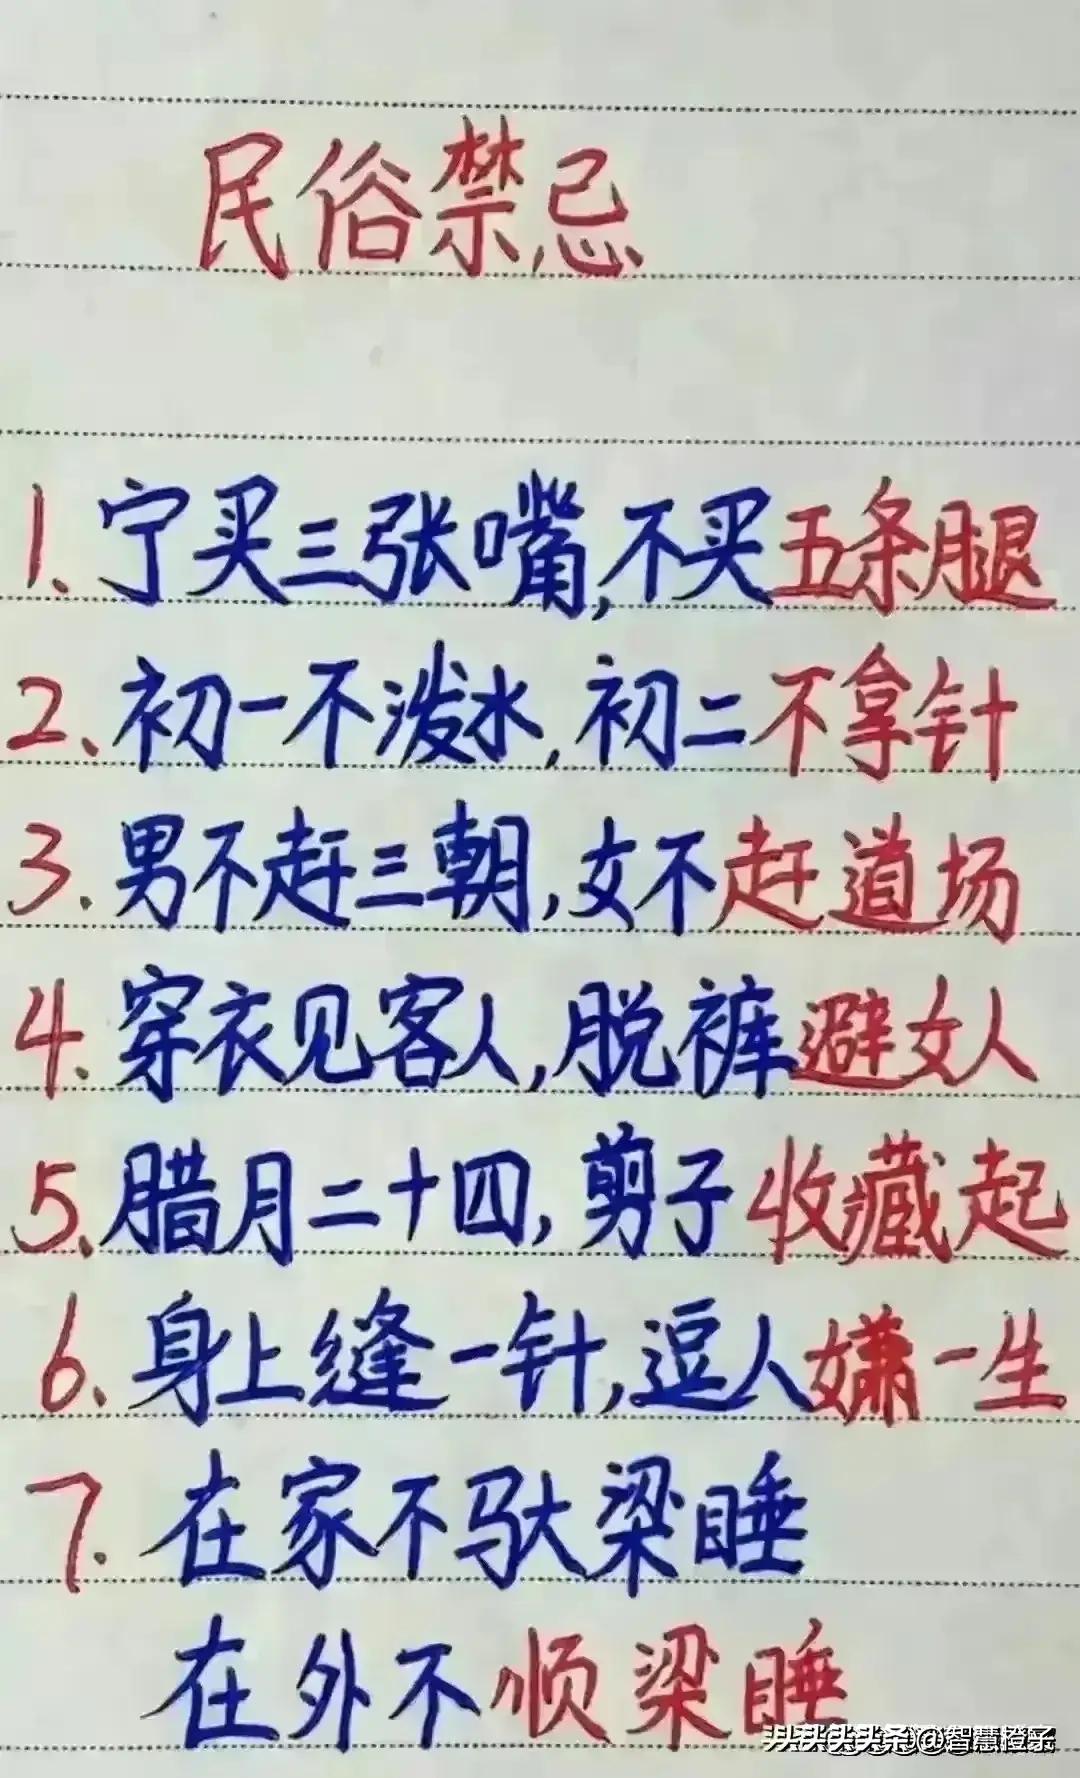 民俗禁忌
1、宁买三张嘴,不买五条腿
2、初一不泼水,初二不拿针
3.男不赶三朝,女不赶道场
4.穿衣见客人,脱裤避女人
5、腊月二十四,剪子收藏起
6、身上缝一针,逗人嫌一生
7.在家不驮梁睡
在外不顺梁睡
@智慧橙子